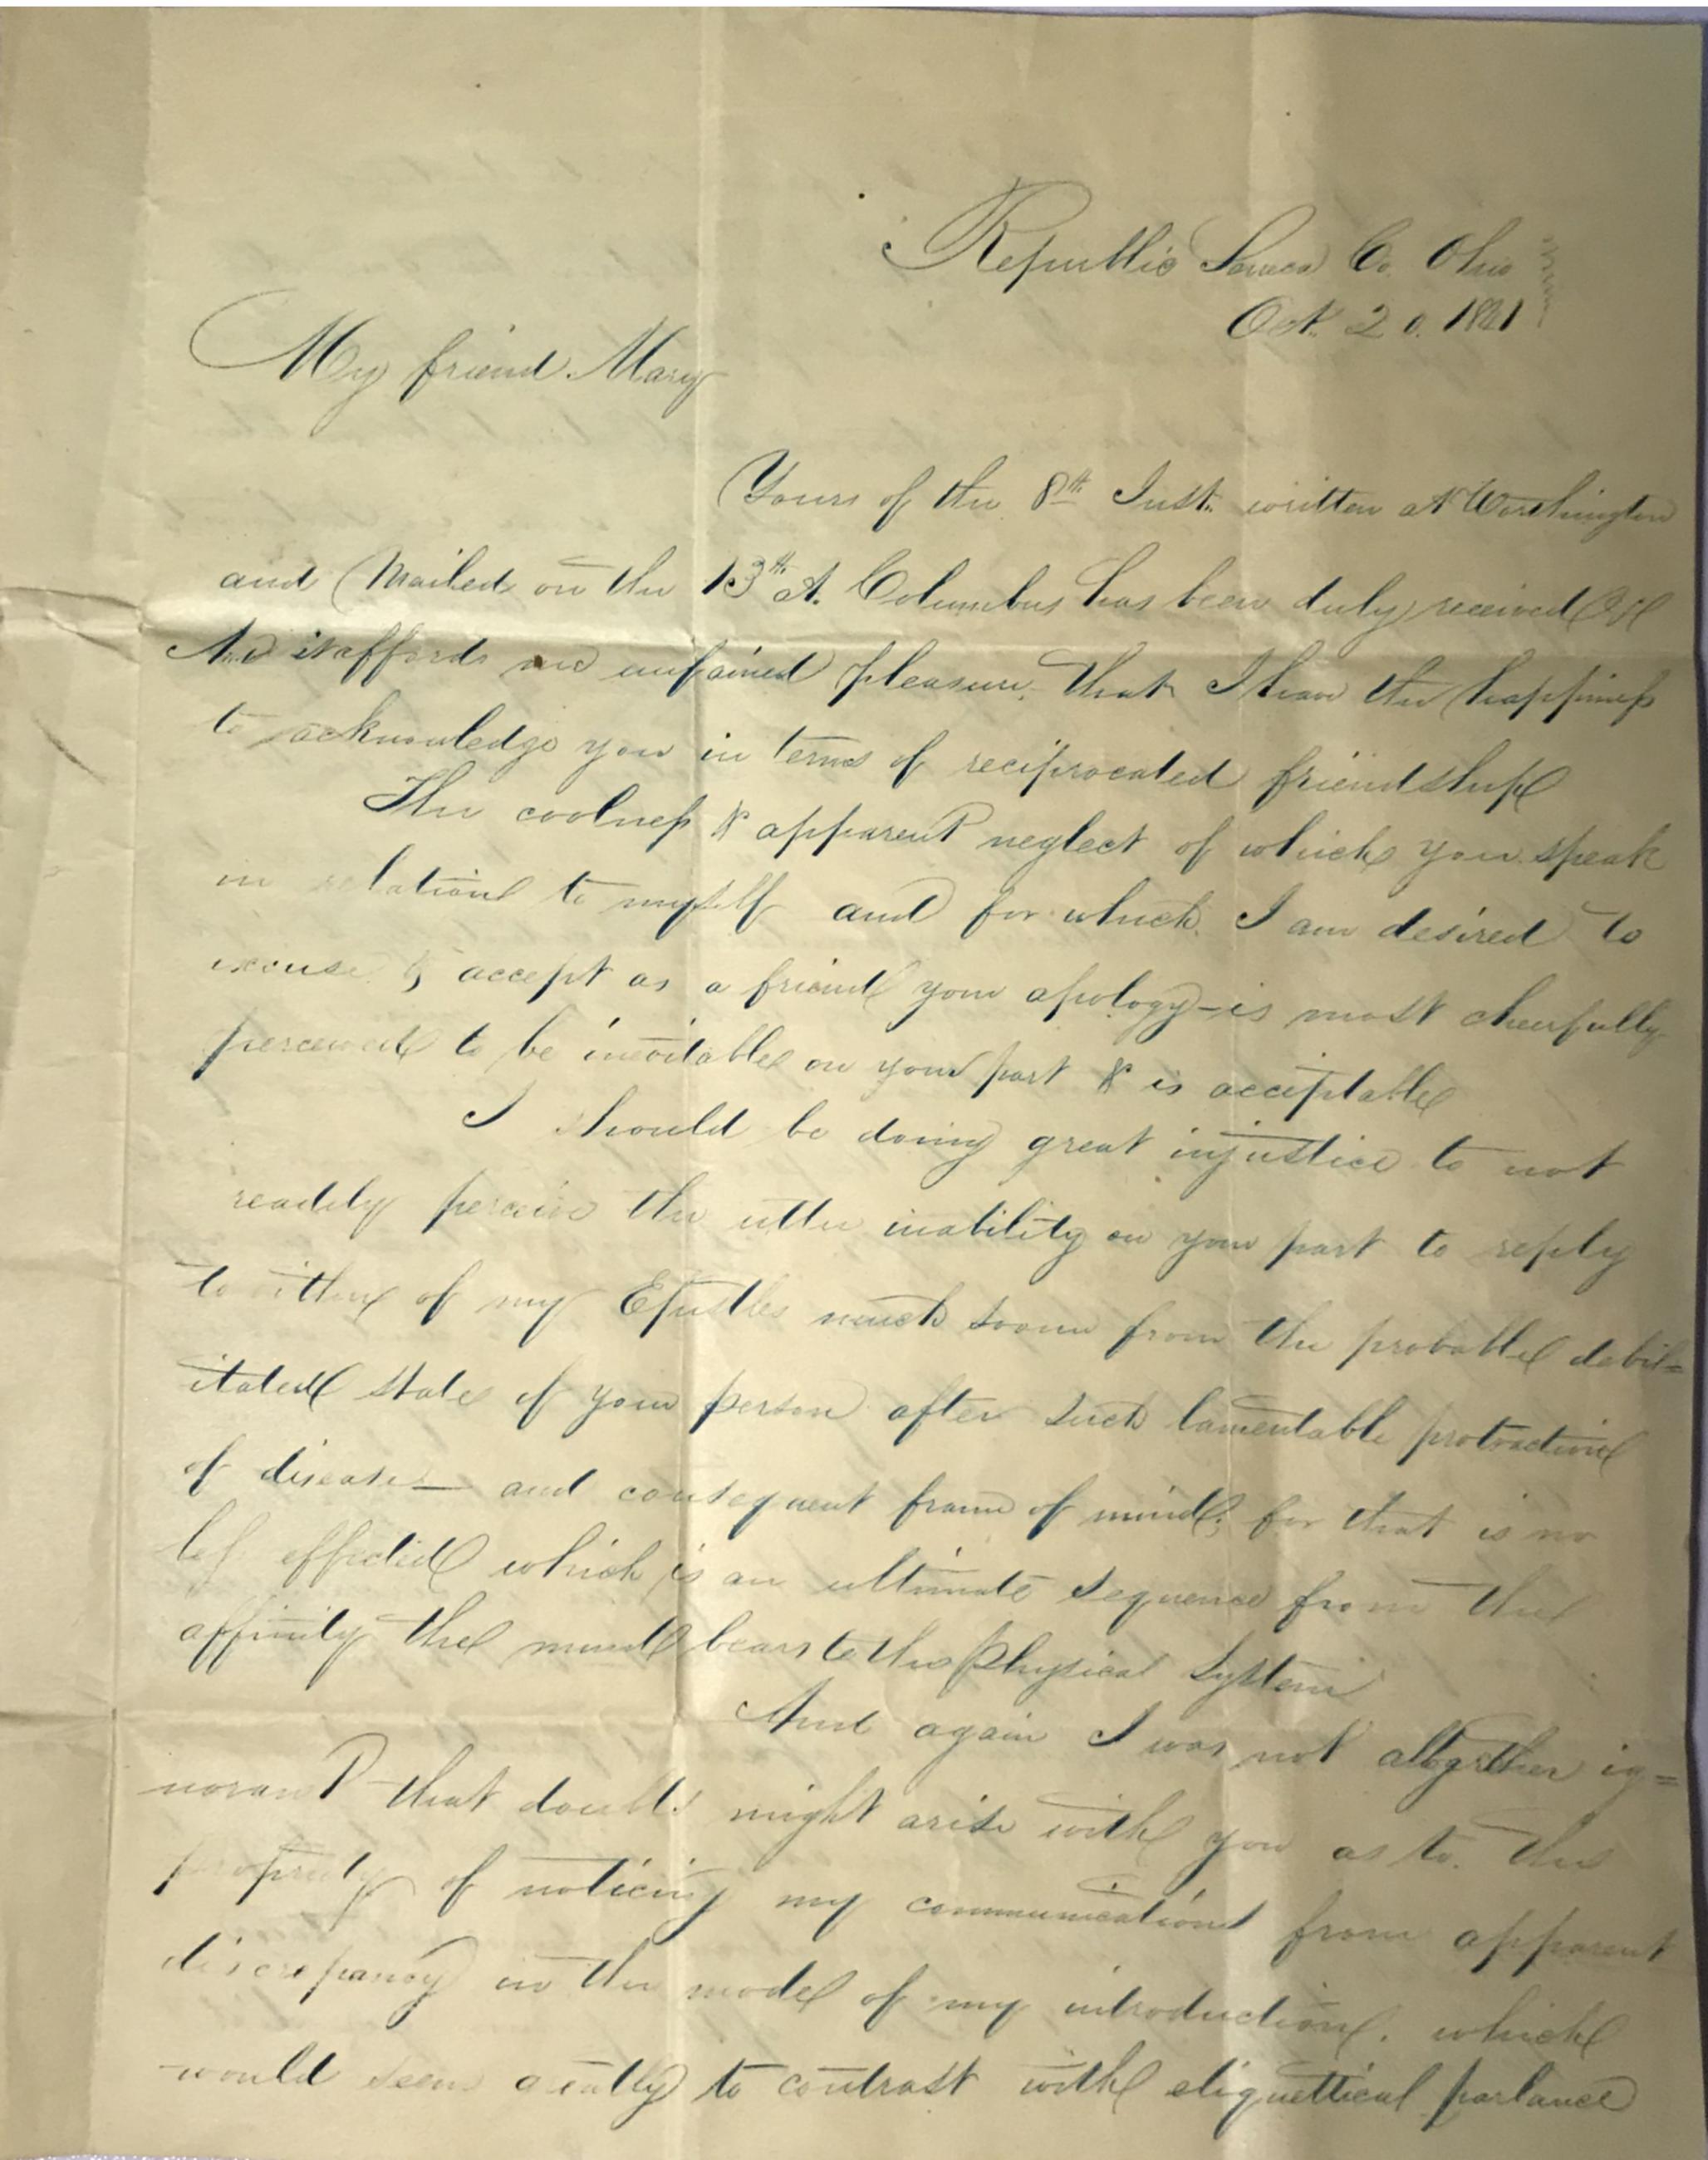 Republic Seneca Co. Ohio
Oct. 20. 1841
My friend Mary
Yours of the 8th Inst. written at Worthington
and Mailed on the 13th at Columbus has been duly received
And it affords me unfained pleasure. that I have the happiness
to acknowledge you in terms of reciprocated friendship
The coolness & apparent neglect of which you speak
in relation to myself and for which I am desired to
excuse & accept as a friend your apology - is most cheerfully
perceived to be inevitable on your part & is acceptable
I should be doing great injustice to not
readily perceive the utter inability on your part to reply
to either of my Epistles much sooner from the probable debil=
itated state of your person after such lamentable protraction
of disease — and consequent frame of mind, for that is no
less effected which is an ultimate sequence from the
affinity the mind bears to the Physical System
And again I was not altogether ig=
norant that doubts might arise with you as to the
propriety of noticing my communications from apparent
discrepancy in the mode of my introduction. which
would seem greatly to contrast with etiquettical parlance